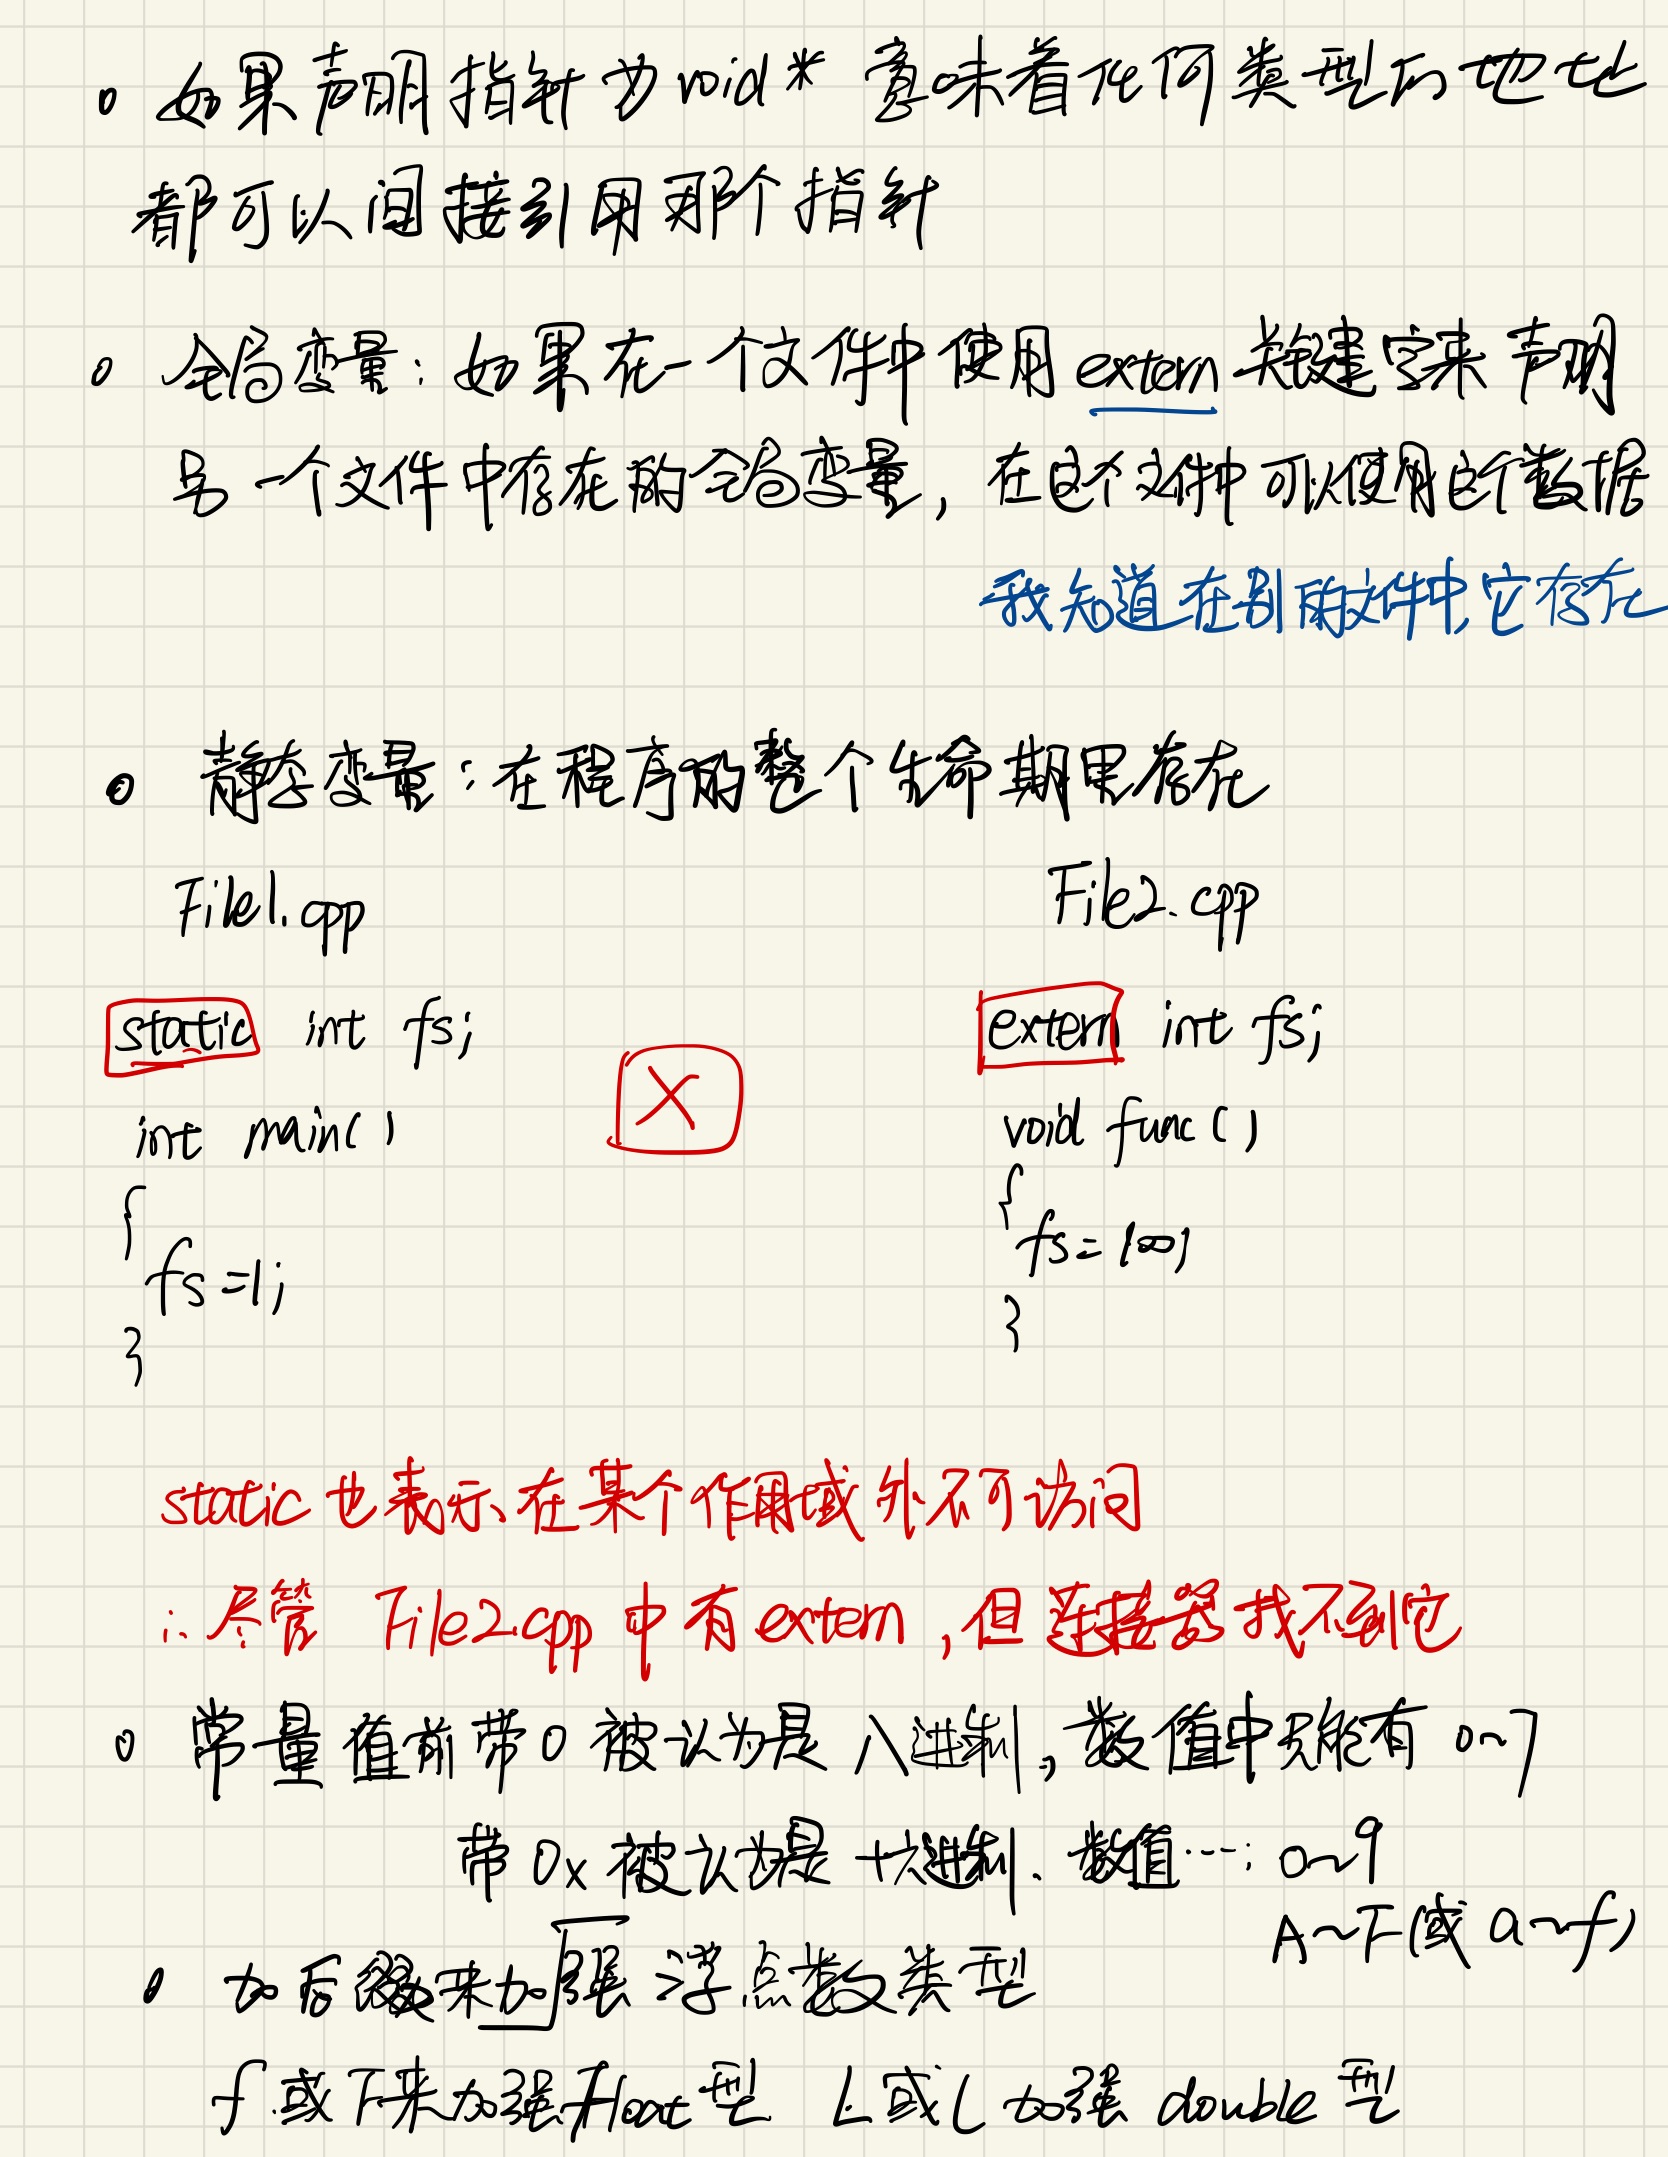 如果声明指针为void* 意味着任何类型的地址
都可以间接引用那个指针
全局变量：如果在一个文件中使用extern关键字来声明
另一个文件中存在的全局变量，在这个文件中可以使用这个数据
我知道在别的文件中，它存在
静态变量：在程序的整个生命期里存在
File1.cpp
static int fs;
int main()
{
fs=1;
}
X
File2.cpp
extern int fs;
void func()
{
fs=100;
}
static也表示在某个作用域外不可访问
∴尽管 File2.cpp中有extern，但连接器找不到它
常量值前带0被认为是八进制，数值中只能有0~7
带0x被认为是十六进制、数值…：0~9
A~F(或a~f)
加后缀来加强浮点数类型
f或F来加强float型 L或l加强double型